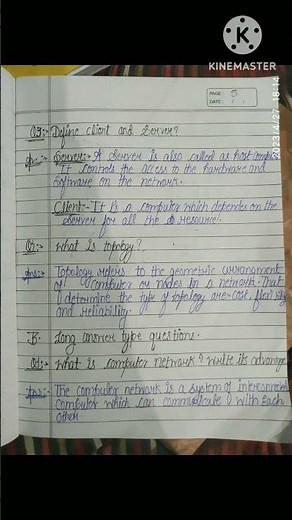 KINEMASTER
PAGE : 5
DATE : / /
2023/4/27 18:14
Q3:- Define client and Server?
Ans:- Server:- A Server is also called as host
It controls the access to the hardware and
software on the network.
Client:- It is a computer which depends on the
Server for all the resource.
Q:- What is topology?
Ans:- Topology refers to the geometric arrangment
of computer or nodes in a network. That
determine the type of topology are cost,
and reliability.
B. Long answer type questions.
Q1:- What is computer network? Write its advantage
Ans:- The computer network is a system of interconnected
computer which can communicate with each
other